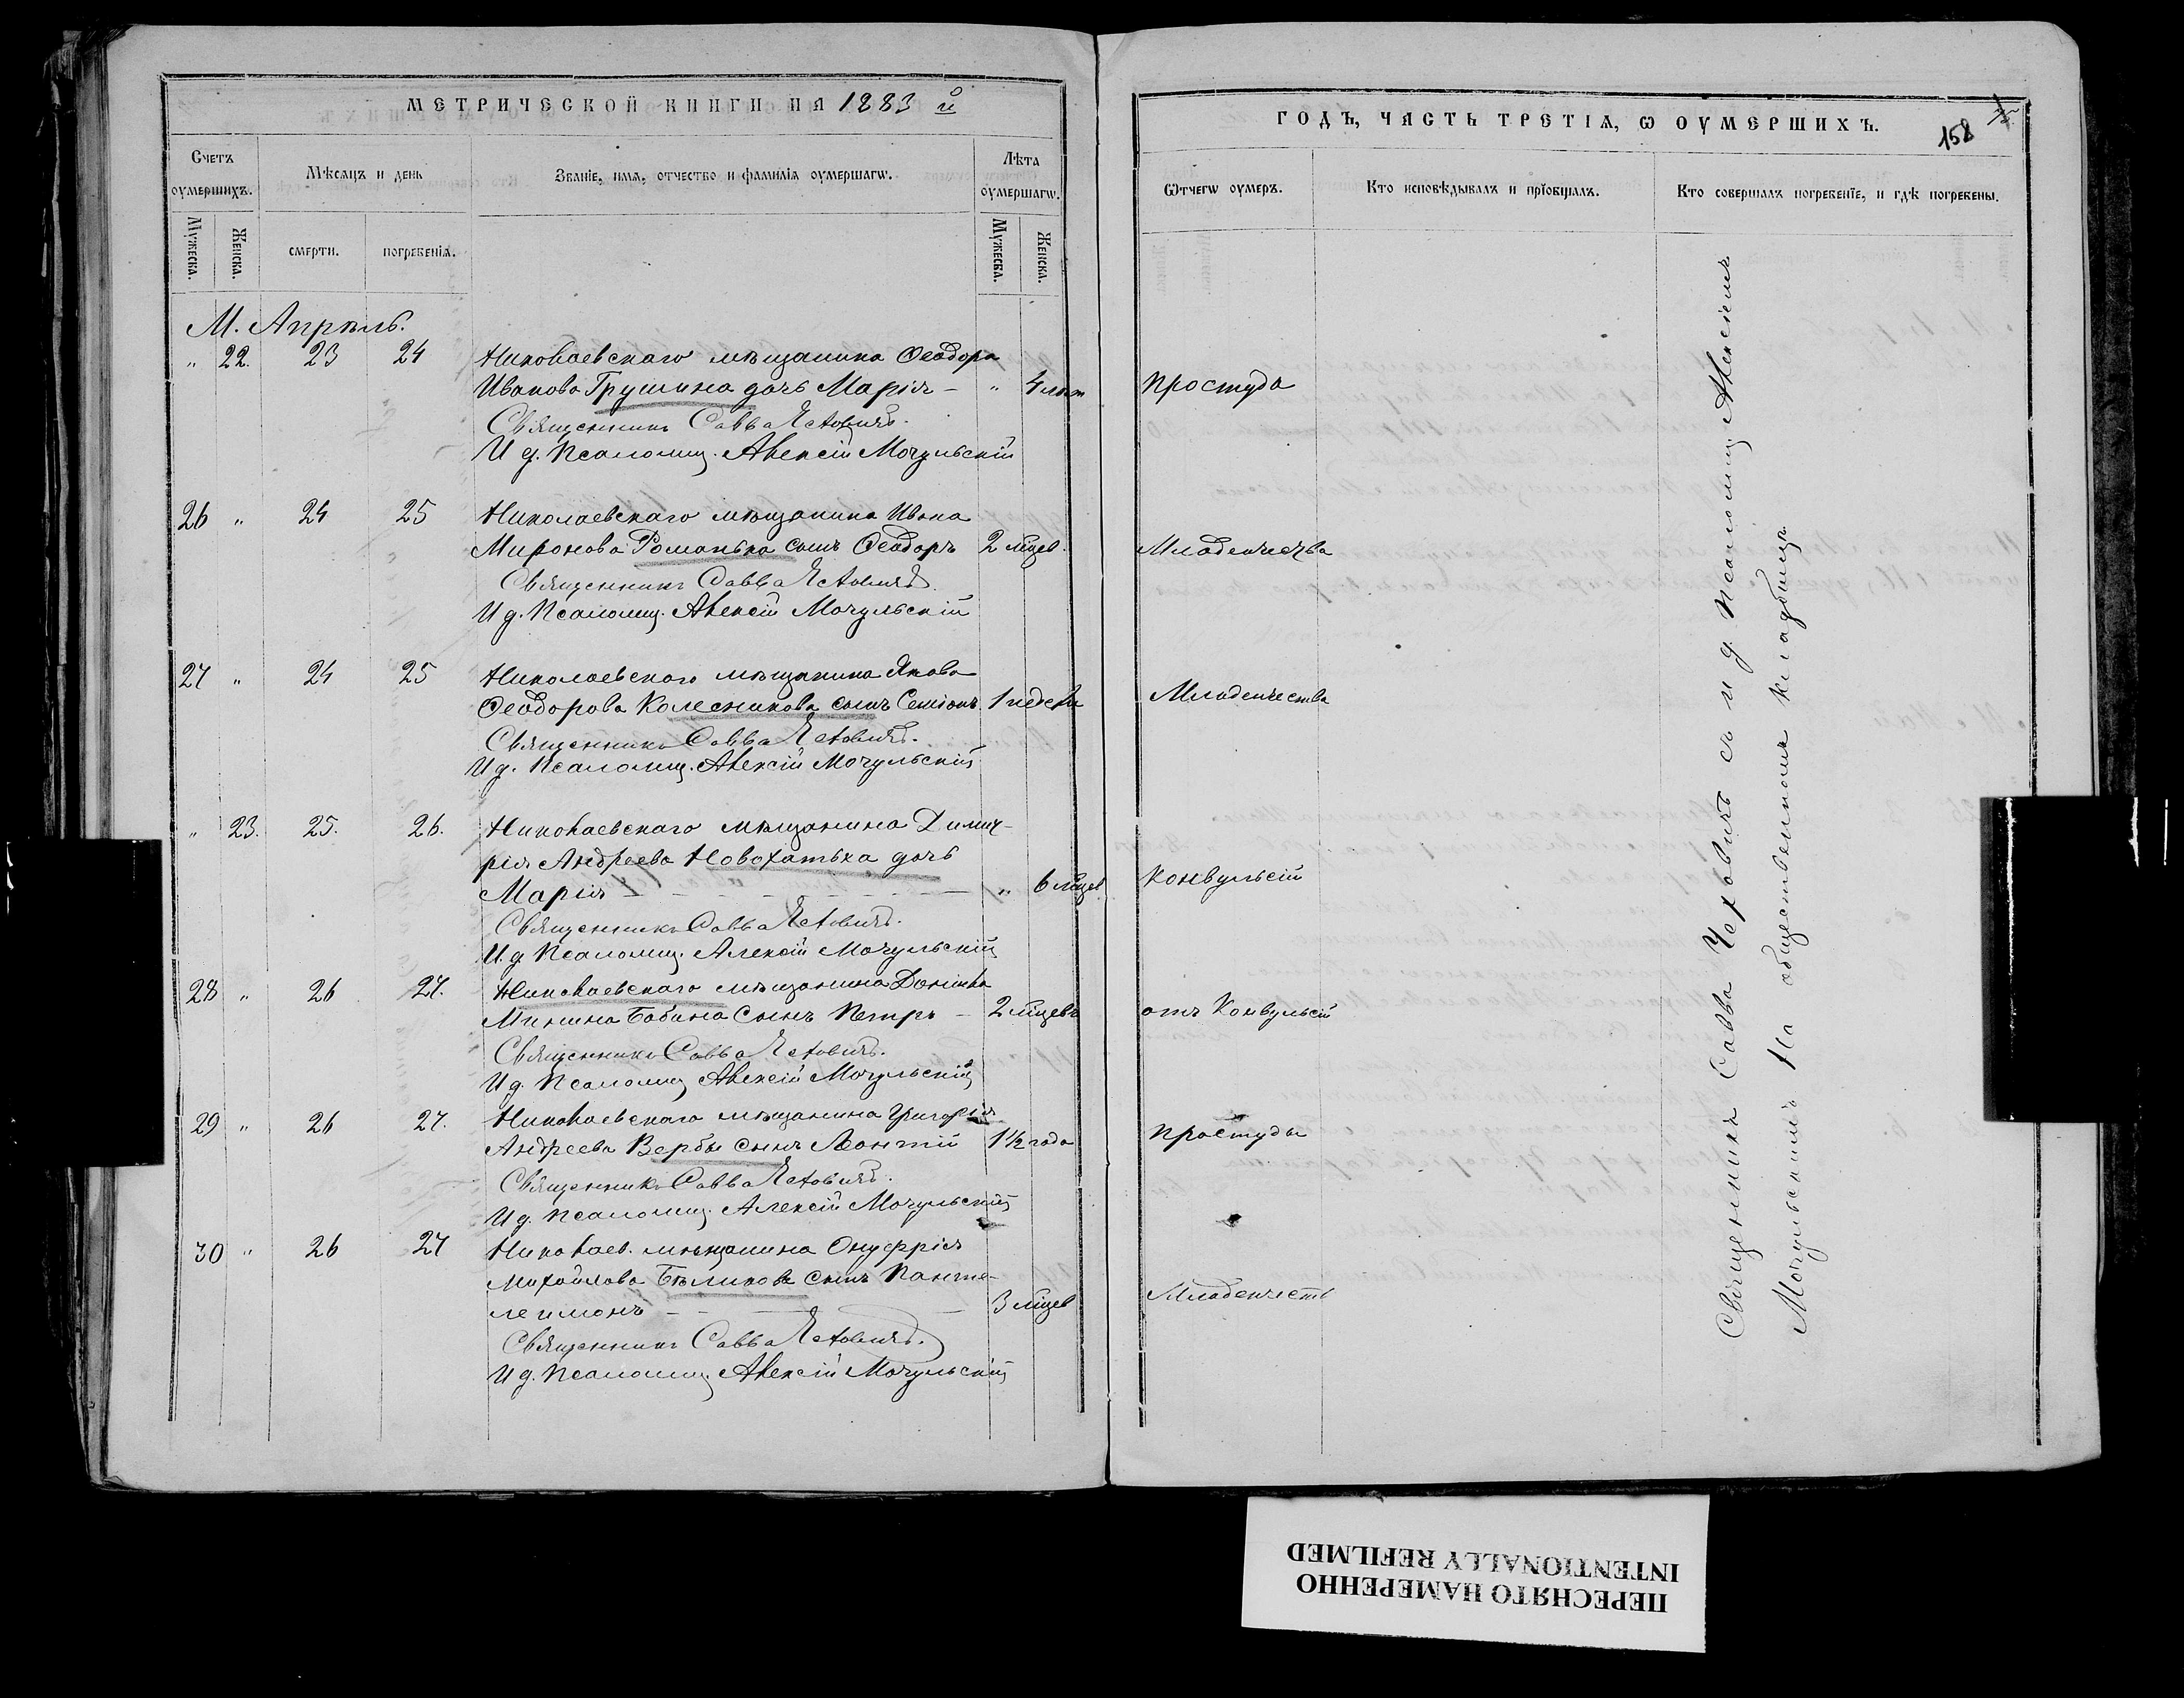 МЕТРИЧЕСКОЙ КНИГИ НА 1883 й
Счетъ оумершихъ.
Мѣсяцъ и день
Званїе, имя, отчество и фамилїя оумершагѡ.
Лѣта оумершагѡ.
Мужеска.
Женска.
смерти.
погребенїя.
Мужеска.
Женска.
М. Апрѣль.
" 22. 23 24 Николаевскаго мѣщанина Ѳеодора
Иванова Грушина дочь Марія - " 4 лѣт
Священникъ Савва
И д. Псаломщ. Алексій Мочульскій
26 " 24 25 Николаевскаго мѣщанина Ивана
Миронова Романька сынъ Ѳеодоръ 2 мѣцев.
Священникъ Савва
И д. Псаломщ. Алексій Мочульскій
27 " 24 25 Николаевскаго мѣщанина Якова
Ѳеодорова Колесникова сынъ Семіонъ 1 недели
Священникъ Савва
И д. Псаломщ. Алексій Мочульскій
" 23. 25. 26. Николаевскаго мѣщанина Димит-
рія Андреева Новохатька дочь
Марія - " 6 мѣцев
Священникъ Савва
И. д Псаломщ. Алексій Мочульскій
28 " 26 27. Николаевскаго мѣщанина
Минина Бабина Сынъ Петръ - 2 мѣцевъ
Священникъ Савва
И д. Псаломщ Алексій Мочульскій
29 " 26 27. Николаевскаго мѣщанина Григорія
Андреева Вербы сынъ Леонтій 1½ года
Священникъ Савва
И д. Псаломщ. Алексій Мочульскій
30 " 26 27 Николаев. мѣщанина Онуфрія
Михайлова Бѣликова сынъ Панте-
леимонъ - 3 мѣцев
Священникъ Савва
И д. Псаломщ Алексій Мочульскій
ГОДЪ, ЧАСТЬ ТРЕТІЯ, Ѡ ОУМЕРШИХЪ.
158
Ѿчегѡ оумеръ.
Кто исповѣдывалъ и прїобщалъ.
Кто совершалъ погребенїе, и гдѣ погребены.
простуда
Младенчества
Младенчества
конвульсій
отъ Конвульсій
простуды
Младенчеств
Священникъ Савва Чехович съ и д. Псаломщ Алексіемъ
Мочульскимъ На общественномъ кладбищѣ
ПЕРЕСНЯТО НАМЕРЕННО
INTENTIONALLY REFILMED